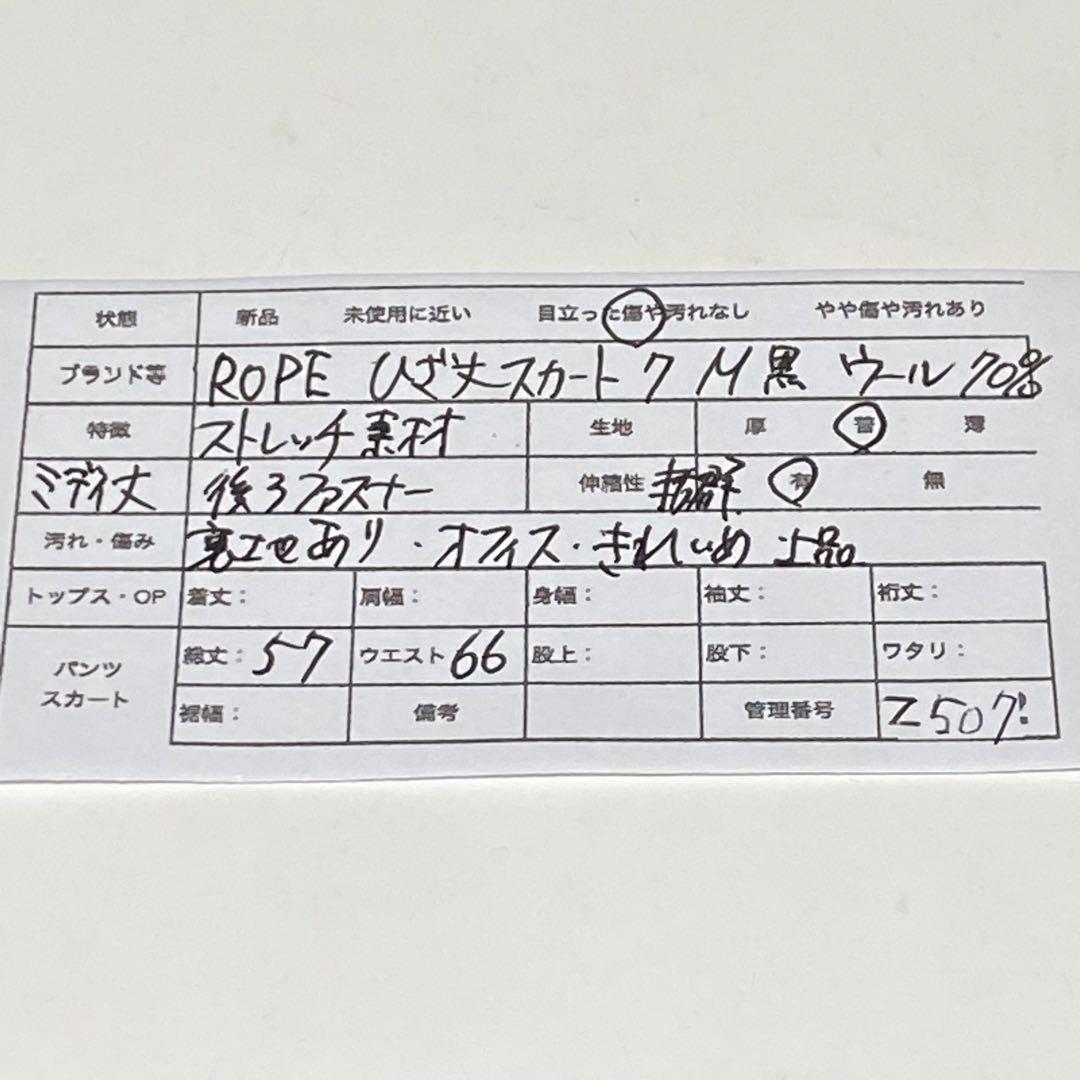 状態 新品 未使用に近い 目立った傷や汚れなし やや傷や汚れあり
ブランド等 ROPE ひざ丈スカート 7 M 黒 ウール 70%
特徴 ストレッチ素材 生地 厚 普 薄
ミディ丈 後ろファスナー 伸縮性 抜群 有 無
汚れ・傷み 裏地あり・オフィス・きれいめ 上品
トップス・OP 着丈: 肩幅: 身幅: 袖丈: 裄丈:
パンツ スカート 総丈: 57 ウエスト 66 股上: 股下: ワタリ:
裾幅: 備考 管理番号 Z507